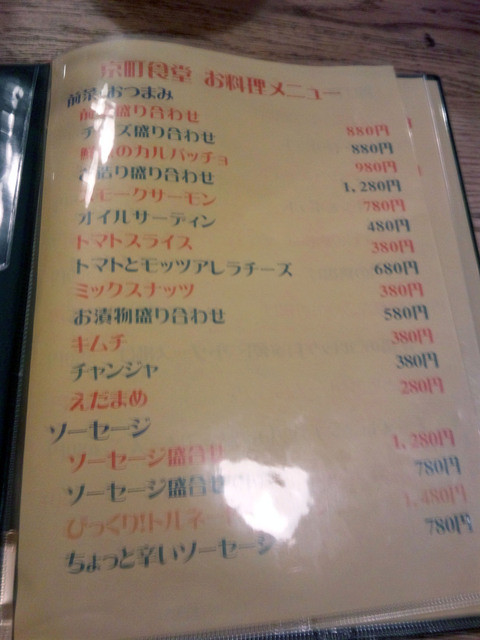 京町食堂 お料理メニュー
前菜 おつまみ
前菜盛り合わせ 880円
チーズ盛り合わせ 880円
鮮魚のカルパッチョ 980円
お造り盛り合わせ 1,280円
スモークサーモン 780円
オイルサーディン 480円
トマトスライス 380円
トマトとモッツアレラチーズ 680円
ミックスナッツ 380円
お漬物盛り合わせ 580円
キムチ 380円
チャンジャ 380円
えだまめ 280円
ソーセージ
ソーセージ盛合せ 1,280円
ソーセージ盛合せ 780円
びっくり!トルネー 1,480円
ちょっと辛いソーセージ 780円